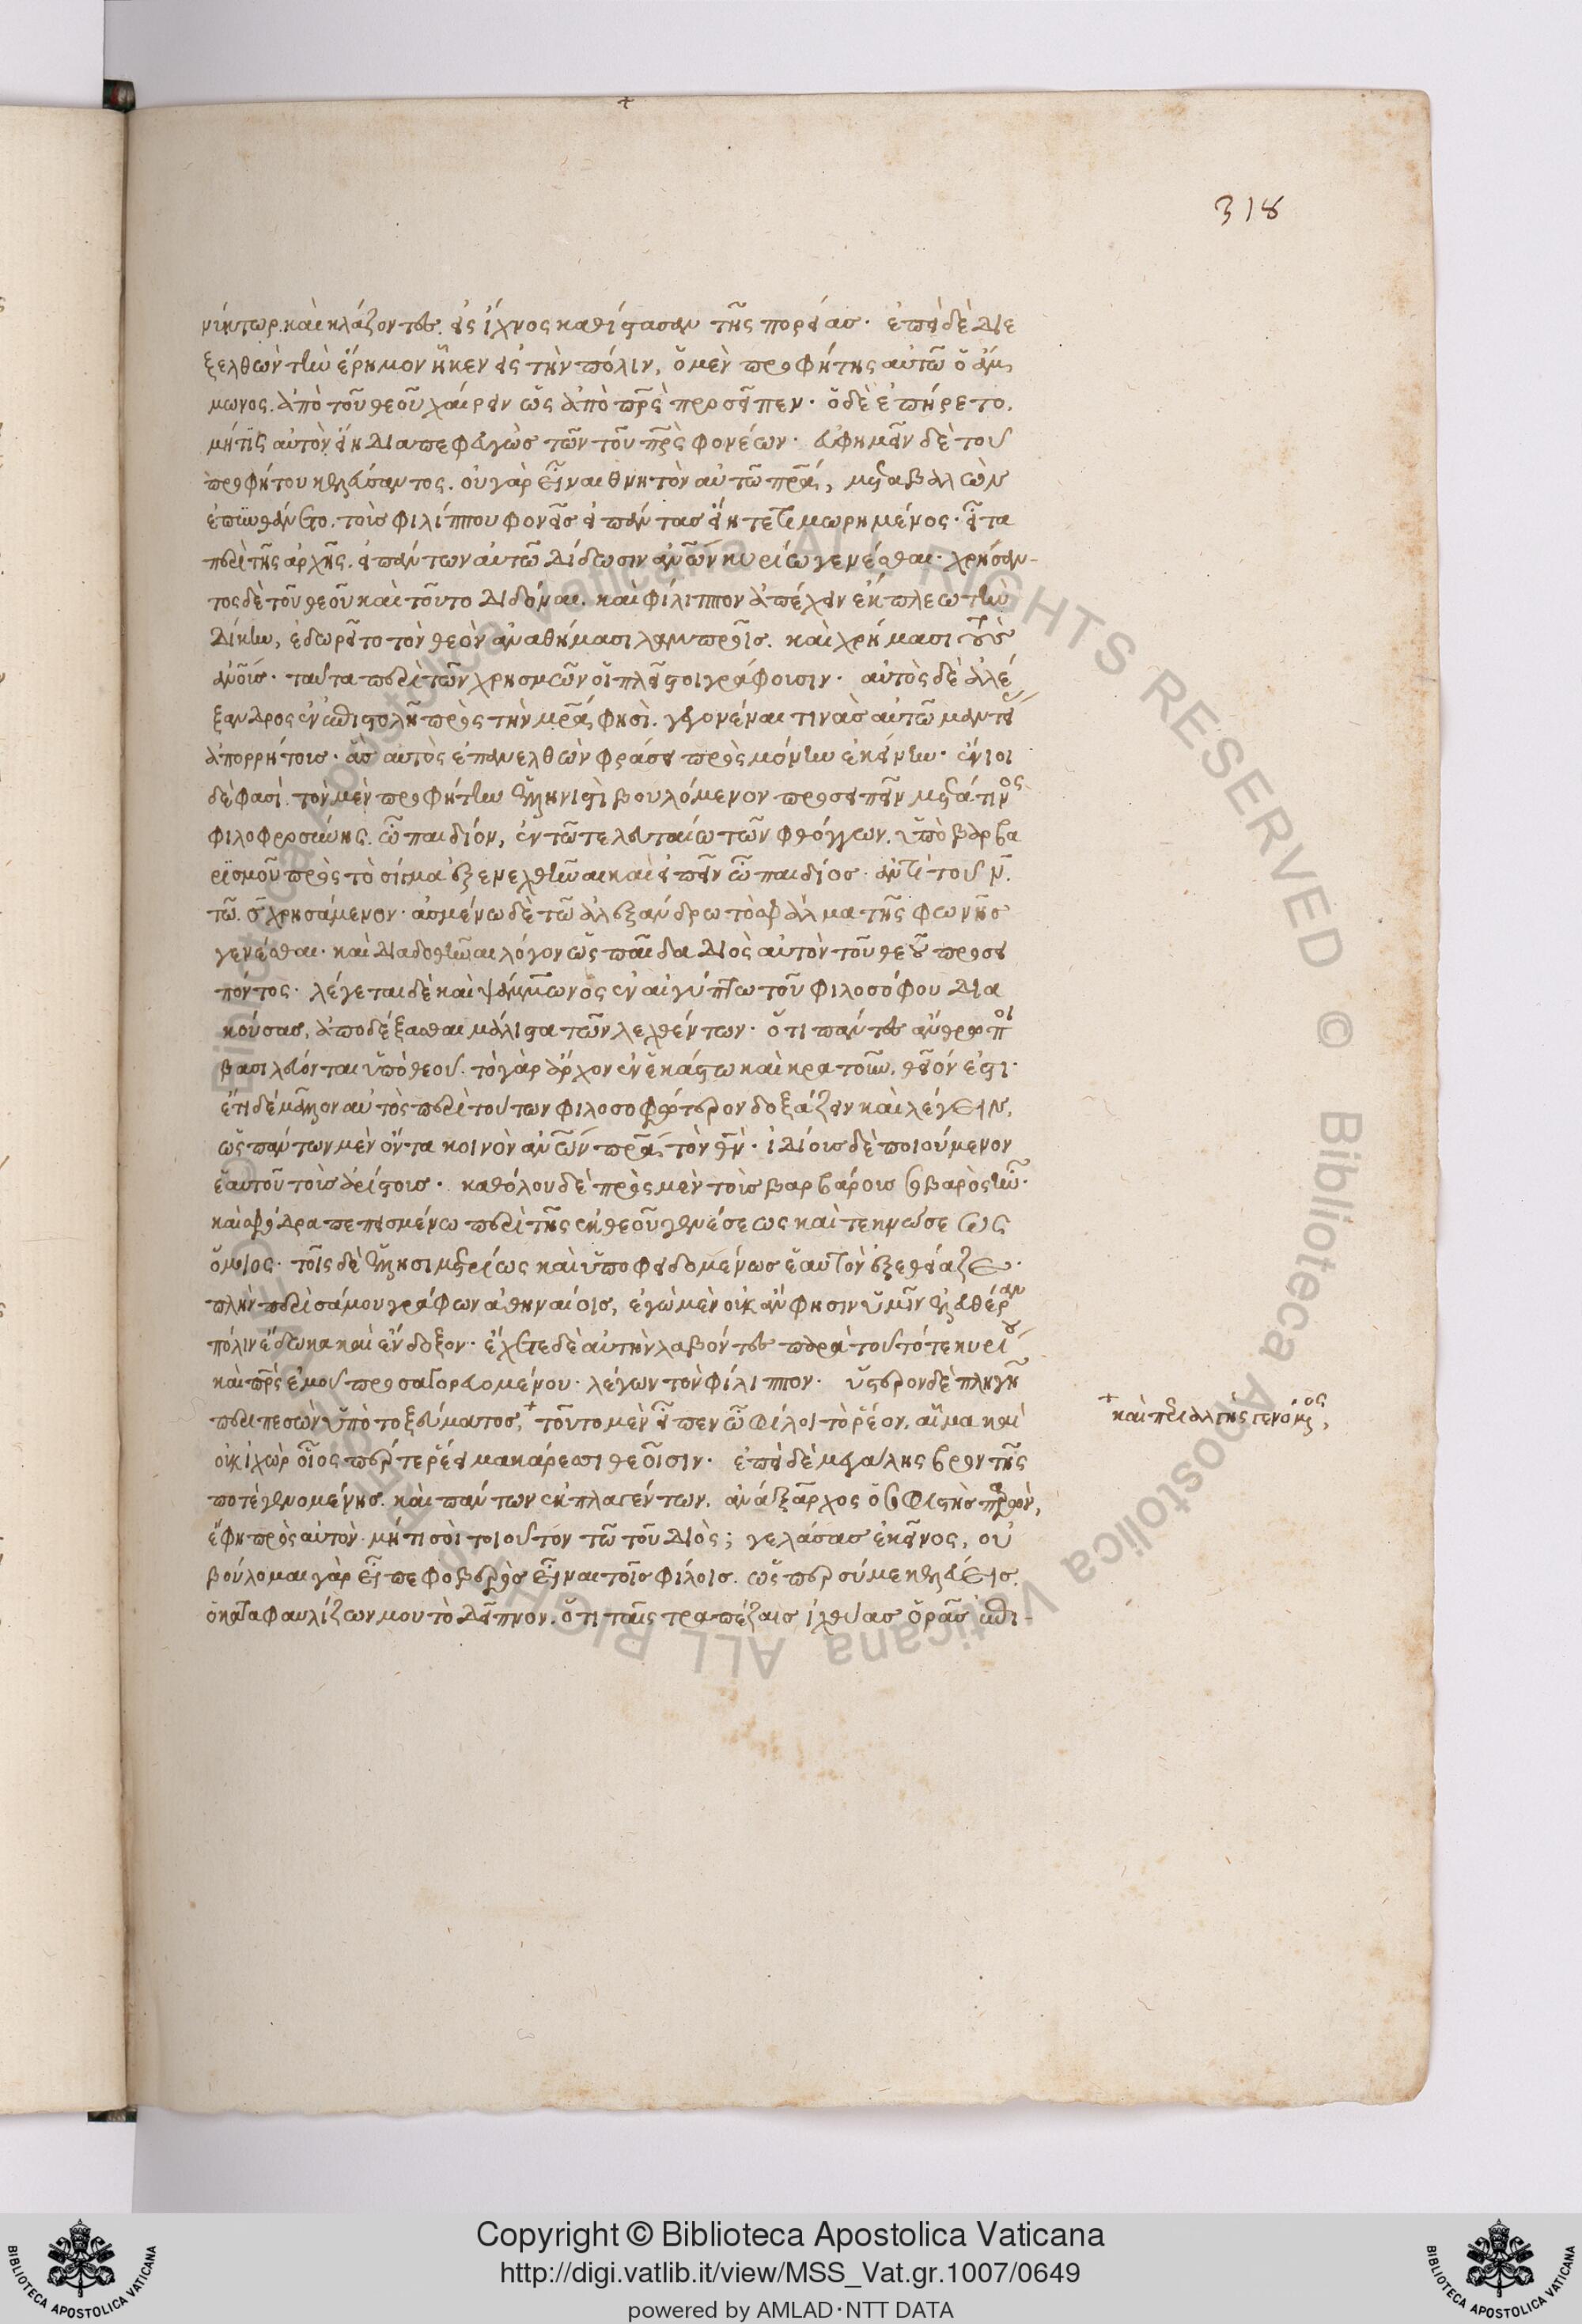 318
νύκτωρ. καὶ κλάζοντες. εἰς ἴχνος καθίστασαν τῆς πορείας. ἐπεὶ δὲ διε
ξελθὼν τὴν ἔρημον ἧκεν εἰς τὴν πόλιν, ὁ μὲν προφήτης αὐτῶ ὁ ἄμ
μωνος. ἀπὸ τοῦ θεοῦ χαίρειν ὡς ἀπὸ πρς προσεῖπεν. ὁ δὲ ἐπήρετο.
μή τις αὐτὸν εἴη διαπεφευγὼς τῶν τοῦ πρς φονέων. εὐφημεῖν δὲ τοῦ
προφήτου κελεύσαντος. οὐ γὰρ εἶναι θνητὸν αὐτῶ πρα, μεταβαλὼν
ἐπυνθάνετο. τοὺς φιλίππου φονεῖς εἰ πάντας εἴη τετιμωρημένος. εἶτα
περὶ τῆς ἀρχῆς. εἰ πάντων αὐτῶ δίδωσιν ανων κυρίω γενέσθαι. χρήσαν-
τος δὲ τοῦ θεοῦ καὶ τοῦτο διδόναι. καὶ φίλιππον ἀπέχειν ἔκπλεω τὴν
δίκην, ἐδωρεῖτο τὸν θεὸν ἀναθήμασι λαμπροῖς. καὶ χρήμασι τοὺς
ανους. ταῦτα περὶ τῶν χρησμῶν οἱ πλεῖστοι γράφουσιν. αὐτὸς δὲ ἀλέ
ξανδρος ἐν ἐπιστολῆ πρὸς τὴν μρα φησὶ. γεγονέναι τινὰς αὐτῶ μαντεί
ἀπορρήτους. ἃς αὐτὸς ἐπανελθὼν φράσει πρὸς μόνην ἐκείνην. ἔνιοι
δέ φασι. τὸν μὲν προφήτην ἑλληνιστὶ βουλόμενον προσειπεῖν μετά τινος
φιλοφροσύνης. ὦ παιδίον, ἐν τῶ τελευταίω τῶν φθόγγων. ὑπὸ βαρβα
ρισμοῦ πρὸς τὸ σίγμα ἐξενεχθῆναι καὶ εἰπεῖν ὦ παιδίος. ἀντὶ τοῦ ν.
τῶ. ς χρησάμενον. ἀσμένω δὲ τῶ ἀλεξάνδρω τὸ σφάλμα τῆς φωνῆς
γενέσθαι. καὶ διαδοθῆναι λόγον ὡς παῖδα διὸς αὐτὸν τοῦ θεοῦ προσει
πόντος. λέγεται δὲ καὶ ψάμμωνος ἐν αἰγύπτω τοῦ φιλοσόφου δια
κούσας, ἀποδέξασθαι μάλιστα τῶν λεχθέντων. ὅτι πάντες ἄνθρωποι
βασιλεύονται ὑπὸ θεοῦ. τὸ γὰρ ἄρχον ἐν ἑκάστω καὶ κρατοῦν. θεῖόν ἐστι.
ἔτι δὲ μᾶλλον αὐτὸς περὶ τούτων φιλοσοφώτερον δοξάζειν καὶ λέγειν,
ὡς πάντων μὲν ὄντα κοινὸν ανων πρα, τὸν θν. ἰδίους δὲ ποιούμενον
ἑαυτοῦ τοὺς ἀρίστους. καθόλου δὲ πρὸς μὲν τοὺς βαρβάρους σοβαρὸς ἦν.
καὶ σφόδρα πεπεισμένω περὶ τῆς ἐκ θεοῦ γενέσεως καὶ τεκνώσεως
ὅμοιος. τοῖς δὲ ἕλλησι μετρίως καὶ ὑποφειδομένως ἑαυτὸν ἐξεθείαζε.
πλὴν περὶ σάμου γράφων ἀθηναίοις, ἐγὼ μὲν οὐκ ἄν φησιν ὑμῖν ἐλευθέραν
πόλιν ἔδωκα καὶ ἔνδοξον. ἔχετε δὲ αὐτὴν λαβόντες παρὰ τοῦ τότε κυρίου
καὶ πρς ἐμοῦ προσαγορευομένου. λέγων τὸν φίλιππον. ὕστερον δὲ πληγῆ
περιπεσὼν ὑπὸ τοξεύματος, + τοῦτο μὲν εἶπεν ὦ φίλοι τὸ ῥέον, αἷμα καὶ
+ καὶ περιαλγὴς γενόμενος,
οὐκ ἰχὼρ οἷος πέρ τε ῥέει μακάρεσσι θεοῖσιν. ἐπεὶ δὲ μεγάλης βροντῆς
ποτὲ γενομένης. καὶ πάντων ἐκπλαγέντων. ἀνάξαρχος ὁ σοφιστὴς παρὼν,
ἔφη πρὸς αὐτὸν. μή τι σὺ τοιοῦτον τῶ τοῦ διὸς; γελάσας ἐκεῖνος, οὐ
βούλομαι γὰρ εἶπε φοβερὸς εἶναι τοῖς φίλοις. ὥσπερ σύ με κελεύεις.
ὁ καταφαυλίζων μου τὸ δεῖπνον. ὅτι ταῖς τραπέζαις ἰχθύας ὁρᾶς ἐπι-
Copyright © Biblioteca Apostolica Vaticana
http://digi.vatlib.it/view/MSS_Vat.gr.1007/0649
powered by AMLAD·NTT DATA